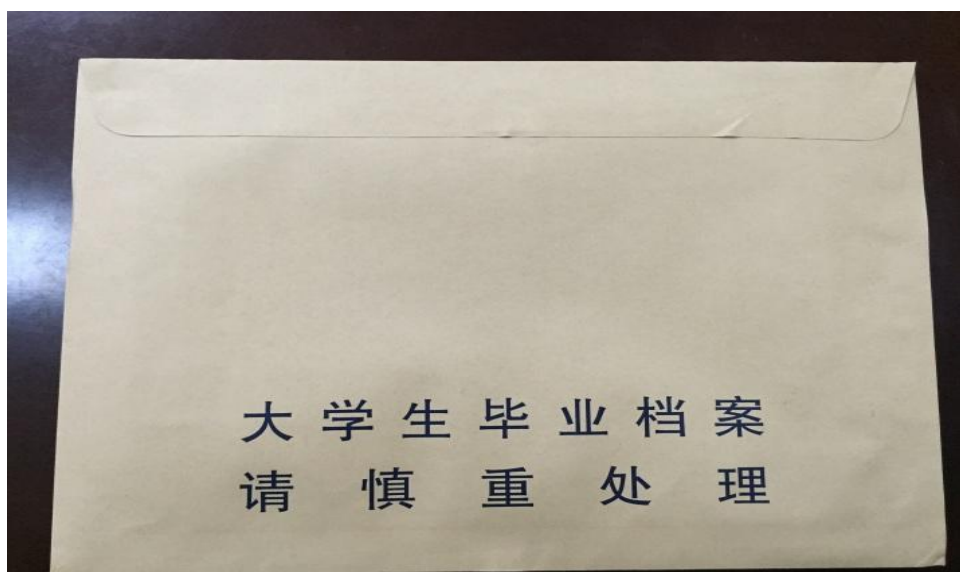 大学生毕业档案
请慎重处理